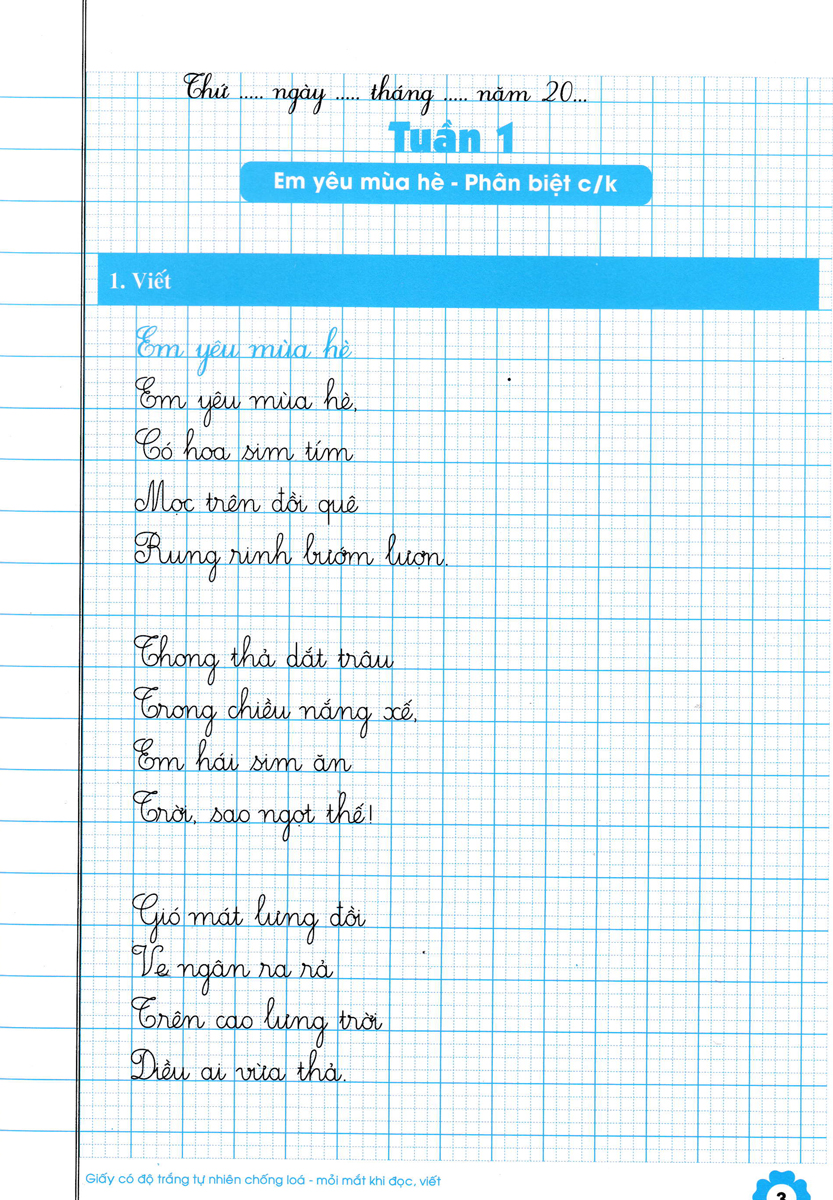 Thứ ..... ngày ..... tháng ..... năm 20...
Tuần 1
Em yêu mùa hè - Phân biệt c/k
1. Viết
Em yêu mùa hè
Em yêu mùa hè,
Có hoa sim tím
Mọc trên đồi quê
Rung rinh bướm lượn.
Thong thả dắt trâu
Trong chiều nắng xế,
Em hái sim ăn
Trời, sao ngọt thế!
Gió mát lưng đồi
Ve ngân ra rả
Trên cao lưng trời
Diều ai vừa thả.
Giấy có độ trắng tự nhiên chống loá - mỏi mắt khi đọc, viết
3